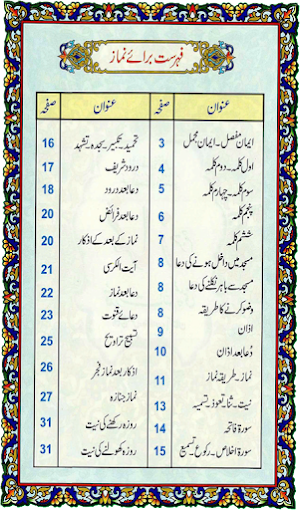 فہرست برائے نماز
عنوان صفحہ
ایمان مفصل۔ایمان مجمل 3
اول کلمہ۔دوم کلمہ 4
سوم کلمہ۔چہارم کلمہ 5
پنجم کلمہ 6
ششم کلمہ 7
مسجد میں داخل ہونے کی دعا 8
مسجد سے باہر نکلنے کی دعا 8
وضو کرنے کا طریقہ 8
اذان 9
دُعا بعد اذان 10
نماز۔طریقہ نماز 11
نیت۔ثنا۔تعوذ۔تسمیہ 13
سورۃ فاتحہ 14
سورۃ اخلاص۔رکوع۔تسمیع 15
عنوان صفحہ
تحمید۔تکبیر۔سجدہ۔تشہد 16
درود شریف 17
دعا بعد درود 18
دعا بعد فرائض 20
نماز کے بعد کے اذکار 20
آیت الکرسی 21
دعا بعد نماز 22
دعائے قنوت 23
تسبیح تراویح 25
اذکار بعد نماز فجر 26
نماز جنازہ 27
روزہ رکھنے کی نیت 31
روزہ کھولنے کی نیت 31